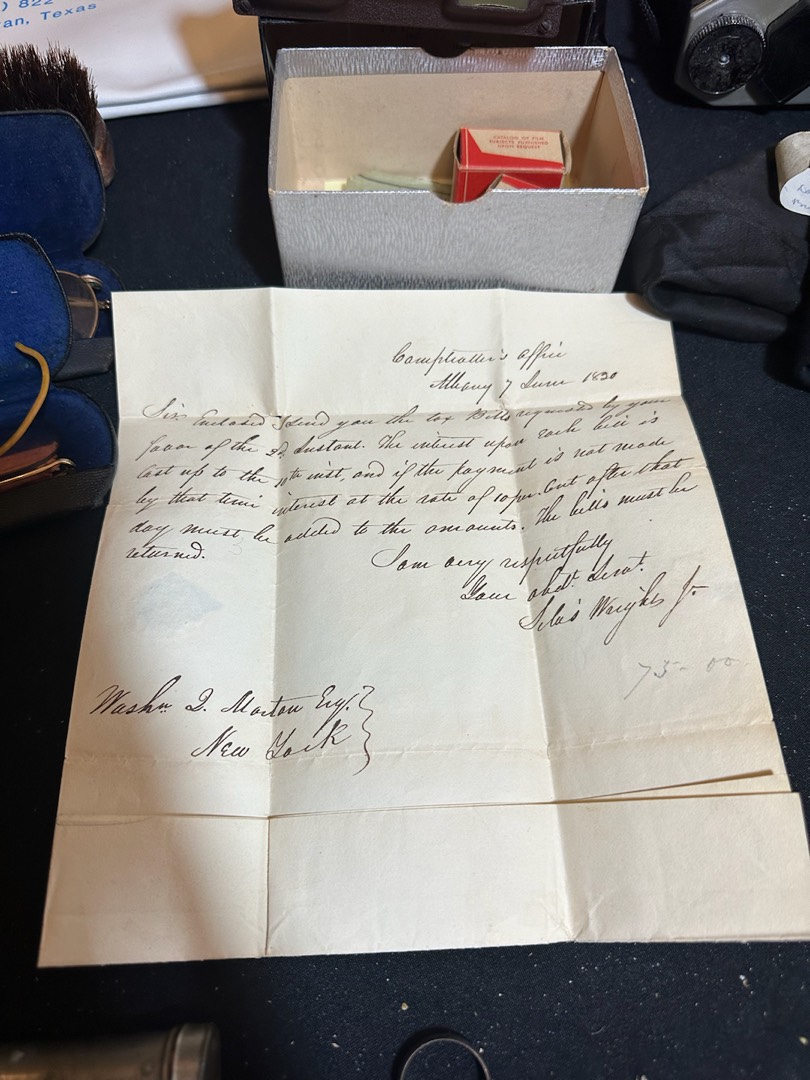 ) 822
an, Texas
CATALOG OF FILM
SUBJECTS FURNISHED
UPON REQUEST
Comptroller's Office
Albany 7 June 1830
Sir. Enclosed I send you the tax Bills requested by your
favor of the 3d. Instant. The interest upon each bill is
cast up to the 10th inst, and if the payment is not made
by that time interest at the rate of 10 pr. Cent after that
day must be added to the amounts. The bills must be
returned.
I am very respectfully
Your obdt. Servt.
Silas Wright Jr
75-00
Washn Q. Morton Esqr.
New York